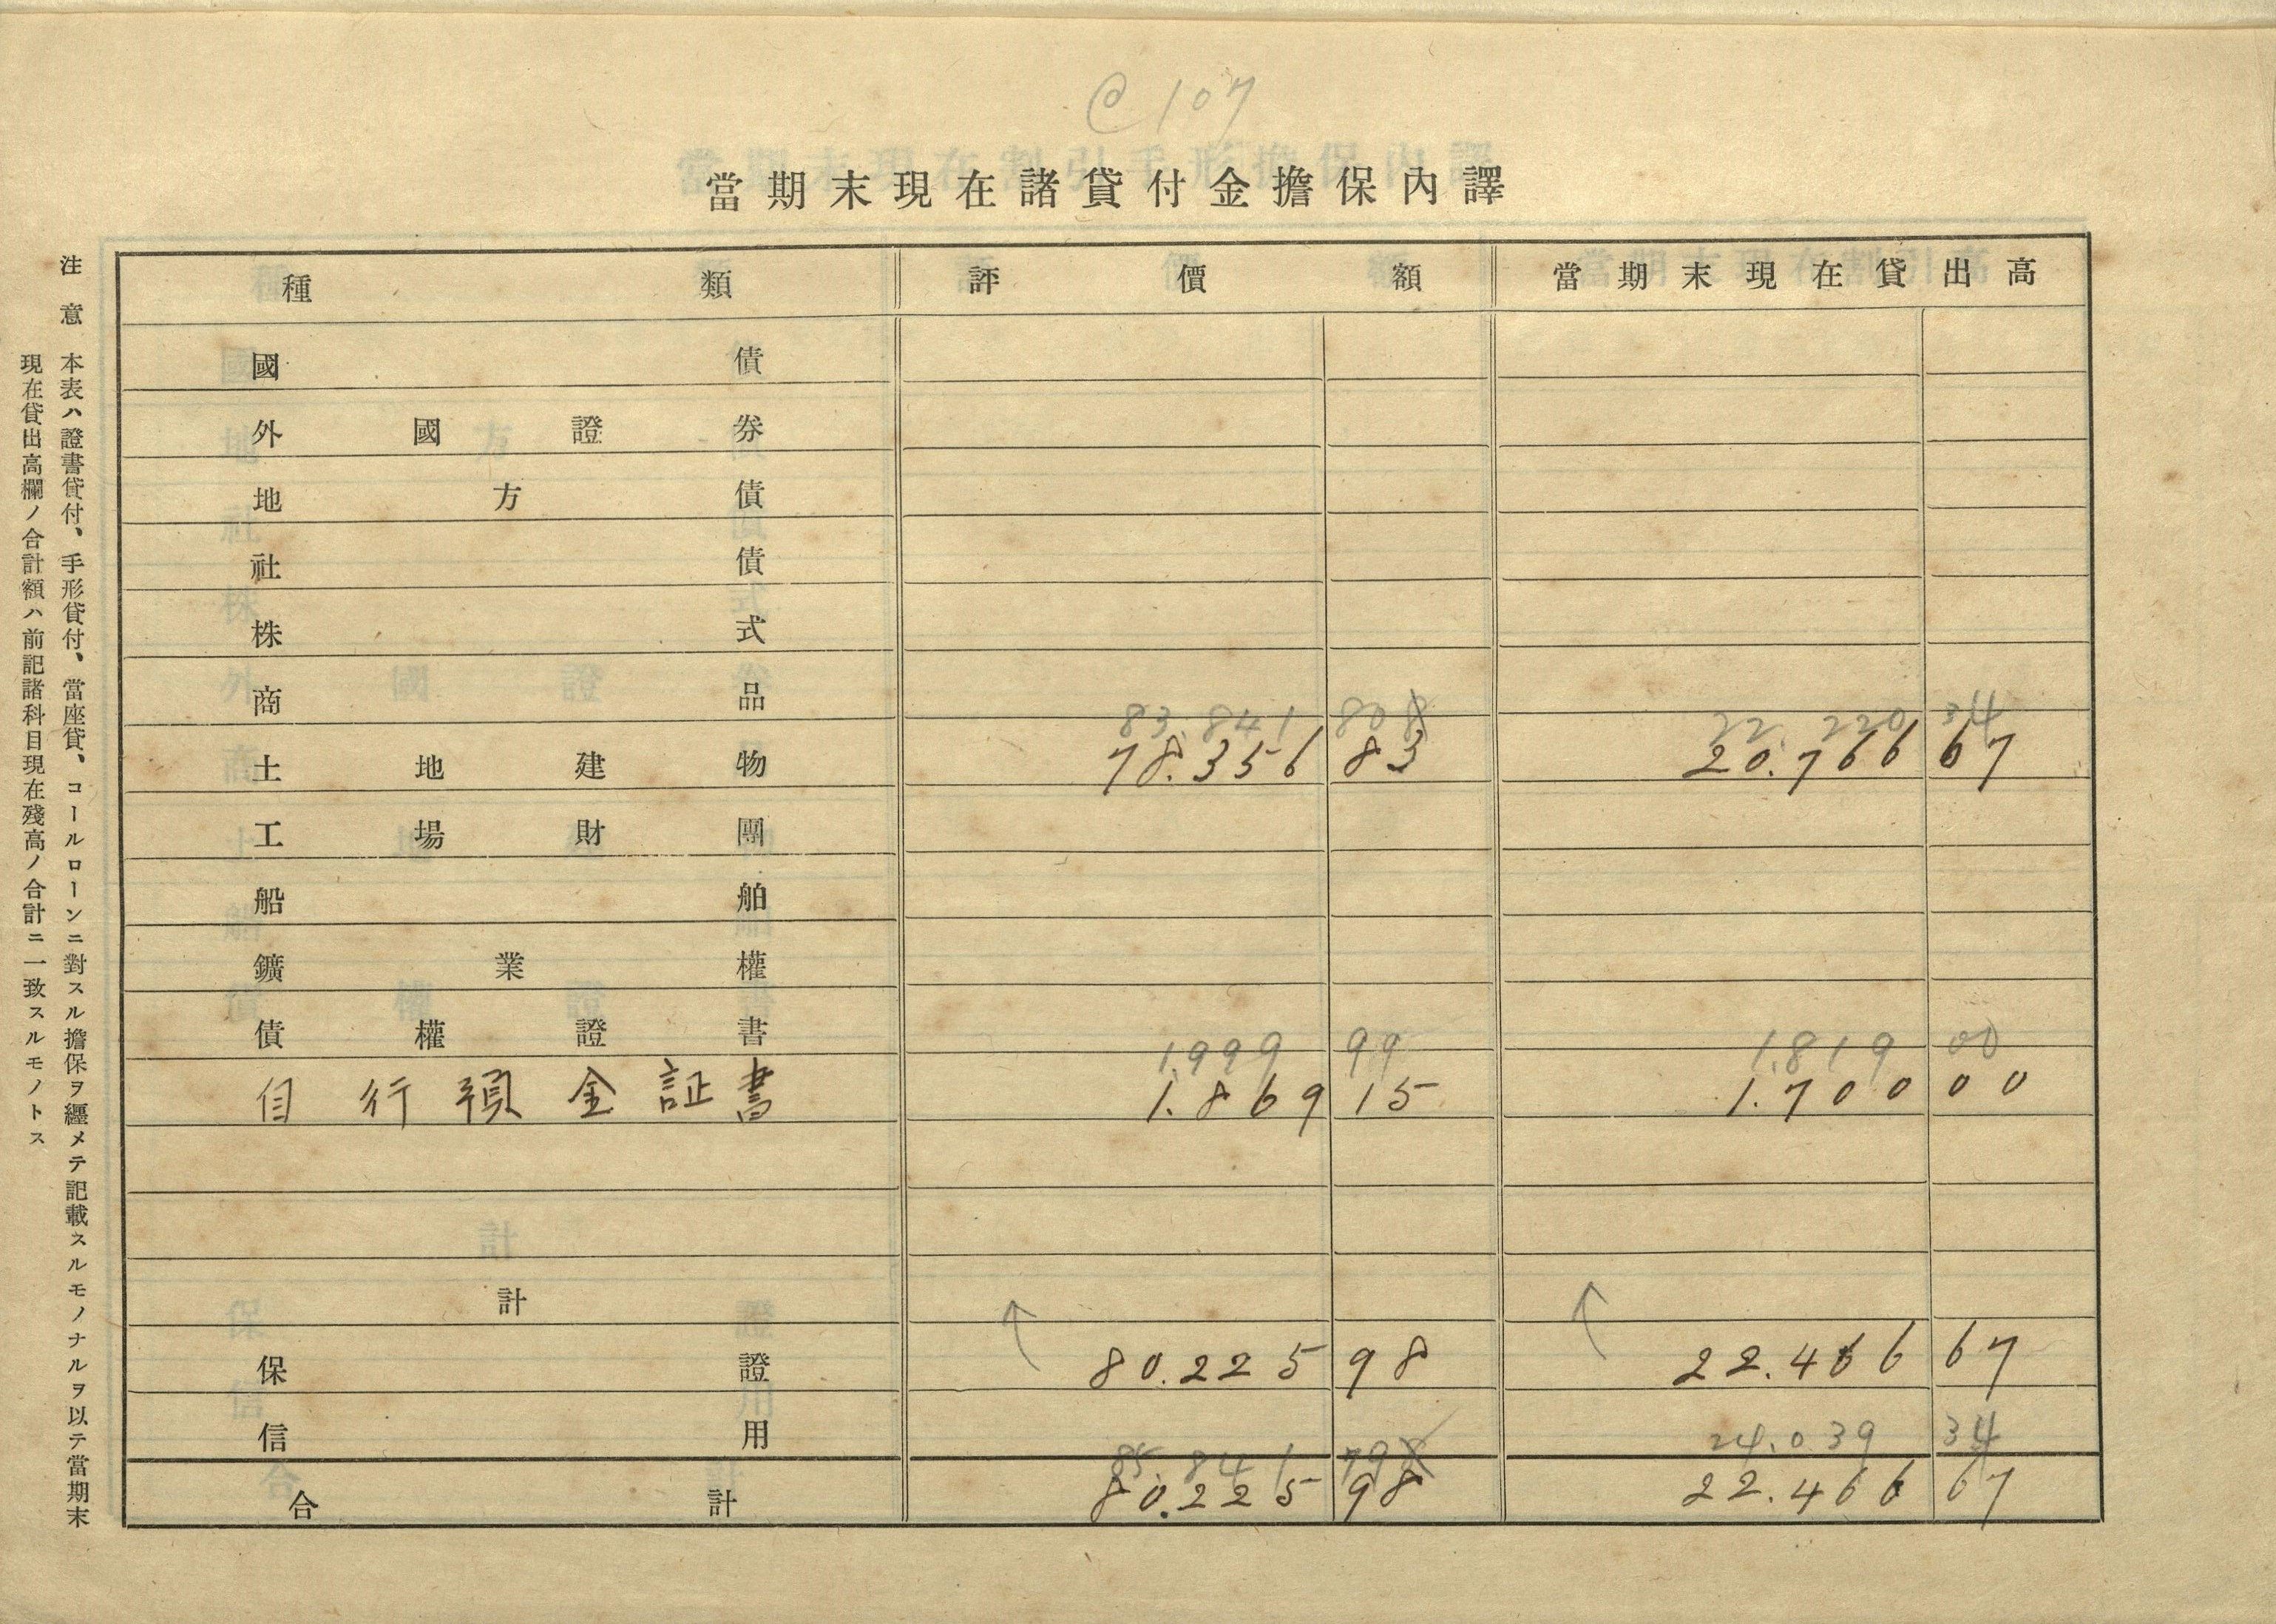 @107
當期末現在諸貸付金擔保內譯
種類 評價額 當期末現在貸出高
國債
外國證券
地方債
社債
株式
商品
83.841 808 22.220 34
土地建物 78.356 83 20.766 67
工場財團
船舶
鑛業權
債權證書
1.999 99 1.819 00
自行預金証書 1.869 15 1.700 00
計
保證 80.225 98 22.466 67
信用
85.841 798 24.039 34
合計 80.225 98 22.466 67
注意 本表ハ證書貸付、手形貸付、當座貸、コールローンニ對スル擔保ヲ纒メテ記載スルモノナルヲ以テ當期末
現在貸出高欄ノ合計額ハ前記諸科目現在殘高ノ合計ニ一致スルモノトス